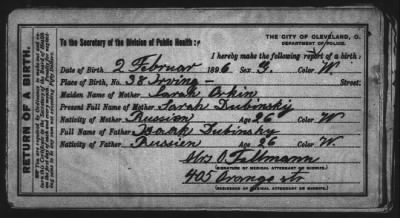 THE CITY OF CLEVELAND, O.
DEPARTMENT OF POLICE.
To the Secretary of the Division of Public Health:
I hereby make the following report of a birth:
Date of Birth 2 Februar 1896 Sex G. Color W.
Place of Birth, No. 38 Irving Street:
Maiden Name of Mother Sarah Orkin
Present Full Name of Mother Sarah Dubinsky
Nativity of Mother Russien Age 26 Color W.
Full Name of Father Isaak Dubinsky
Nativity of Father Russien Age 26 Color W.
Mrs O. Tallmann
(SIGNATURE OF MEDICAL ATTENDANT OR MIDWIFE.)
405 Orange str
(RESIDENCE OF MEDICAL ATTENDANT OR MIDWIFE.)
RETURN OF A BIRTH.